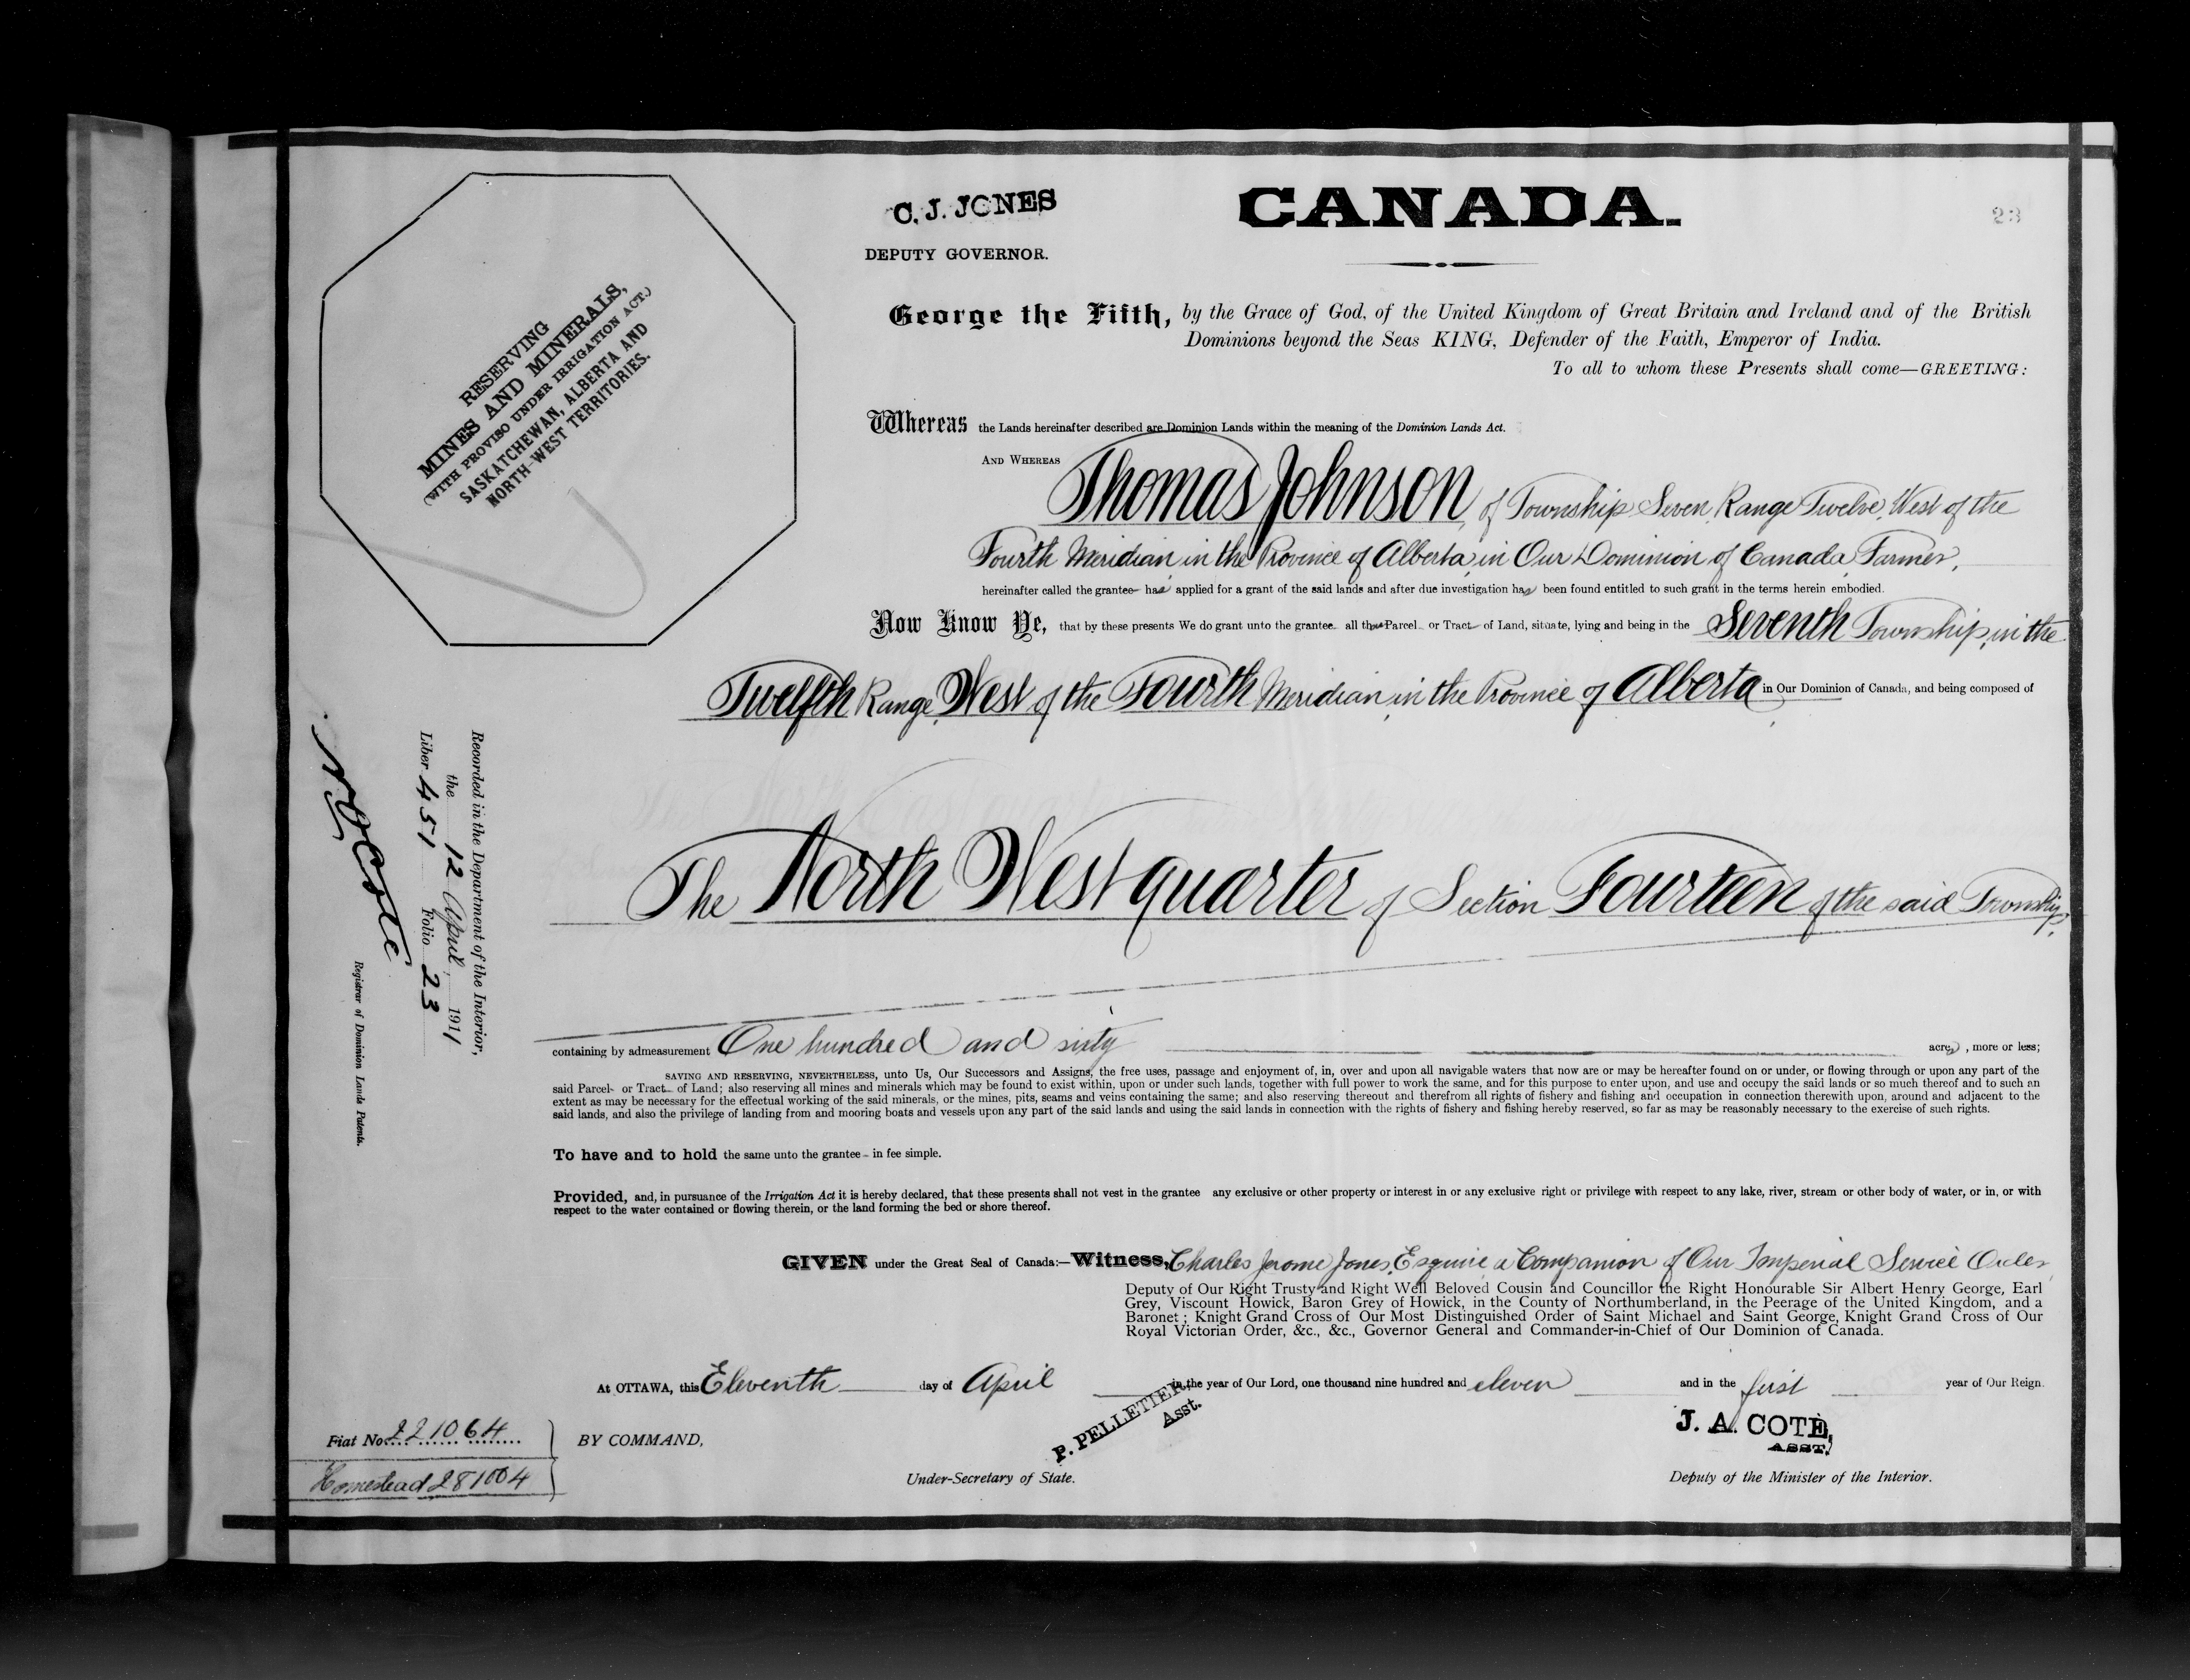 C. J. JONES
DEPUTY GOVERNOR.
CANADA.
23
RESERVING
MINES AND MINERALS,
(WITH PROVISO UNDER IRRIGATION ACT.)
SASKATCHEWAN, ALBERTA AND
NORTH-WEST TERRITORIES.
George the Fifth, by the Grace of God, of the United Kingdom of Great Britain and Ireland and of the British
Dominions beyond the Seas KING, Defender of the Faith, Emperor of India.
To all to whom these Presents shall come—GREETING:
Whereas the Lands hereinafter described are Dominion Lands within the meaning of the Dominion Lands Act.
AND WHEREAS Thomas Johnson, of Township Seven, Range Twelve, West of the
Fourth Meridian in the Province of Alberta, in Our Dominion of Canada, Farmer,
hereinafter called the grantee has applied for a grant of the said lands and after due investigation has been found entitled to such grant in the terms herein embodied.
Now Know Ye, that by these presents We do grant unto the grantee all that Parcel or Tract of Land, situate, lying and being in the Seventh Township, in the
Twelfth Range, West of the Fourth Meridian, in the Province of Alberta, in Our Dominion of Canada, and being composed of
The North West quarter of Section Fourteen of the said Township,
containing by admeasurement One hundred and sixty acres, more or less;
SAVING AND RESERVING, NEVERTHELESS, unto Us, Our Successors and Assigns, the free uses, passage and enjoyment of, in, over and upon all navigable waters that now are or may be hereafter found on or under, or flowing through or upon any part of the
said Parcel or Tract of Land; also reserving all mines and minerals which may be found to exist within, upon or under such lands, together with full power to work the same, and for this purpose to enter upon, and use and occupy the said lands or so much thereof and to such an
extent as may be necessary for the effectual working of the said minerals, or the mines, pits, seams and veins containing the same; and also reserving thereout and therefrom all rights of fishery and fishing and occupation in connection therewith upon, around and adjacent to the
said lands, and also the privilege of landing from and mooring boats and vessels upon any part of the said lands and using the said lands in connection with the rights of fishery and fishing hereby reserved, so far as may be reasonably necessary to the exercise of such rights.
To have and to hold the same unto the grantee in fee simple.
Provided, and, in pursuance of the Irrigation Act it is hereby declared, that these presents shall not vest in the grantee any exclusive or other property or interest in or any exclusive right or privilege with respect to any lake, river, stream or other body of water, or in, or with
respect to the water contained or flowing therein, or the land forming the bed or shore thereof.
GIVEN under the Great Seal of Canada:—Witness, Charles Jerome Jones, Esquire, a Companion of Our Imperial Service Order,
Deputy of Our Right Trusty and Right Well Beloved Cousin and Councillor the Right Honourable Sir Albert Henry George, Earl
Grey, Viscount Howick, Baron Grey of Howick, in the County of Northumberland, in the Peerage of the United Kingdom, and a
Baronet; Knight Grand Cross of Our Most Distinguished Order of Saint Michael and Saint George, Knight Grand Cross of Our
Royal Victorian Order, &c., &c., Governor General and Commander-in-Chief of Our Dominion of Canada.
At OTTAWA, this Eleventh day of April in the year of Our Lord, one thousand nine hundred and eleven and in the first year of Our Reign.
BY COMMAND,
P. PELLETIER,
Asst.
Under-Secretary of State.
J. A. COTE,
ASST.
Deputy of the Minister of the Interior.
Fiat No. 221064
Homestead 281004
Recorded in the Department of the Interior,
the 12 April 1911
Liber 451 Folio 23
N O Coste
Registrar of Dominion Lands Patents.